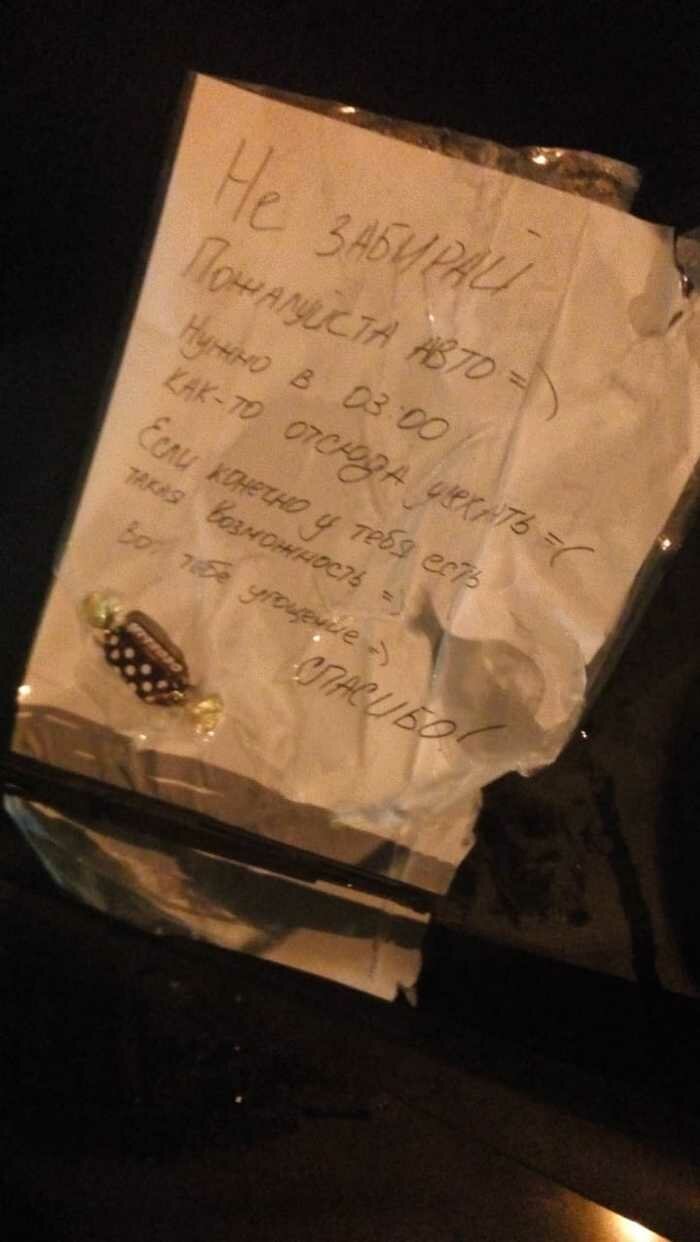 Не ЗАБИРАЙ
Пожалуйста авто =)
Нужно в 03:00
как-то отсюда уехать =(
Если конечно у тебя есть
такая возможность =)
Вот тебе угощение =)
СПАСИБО!